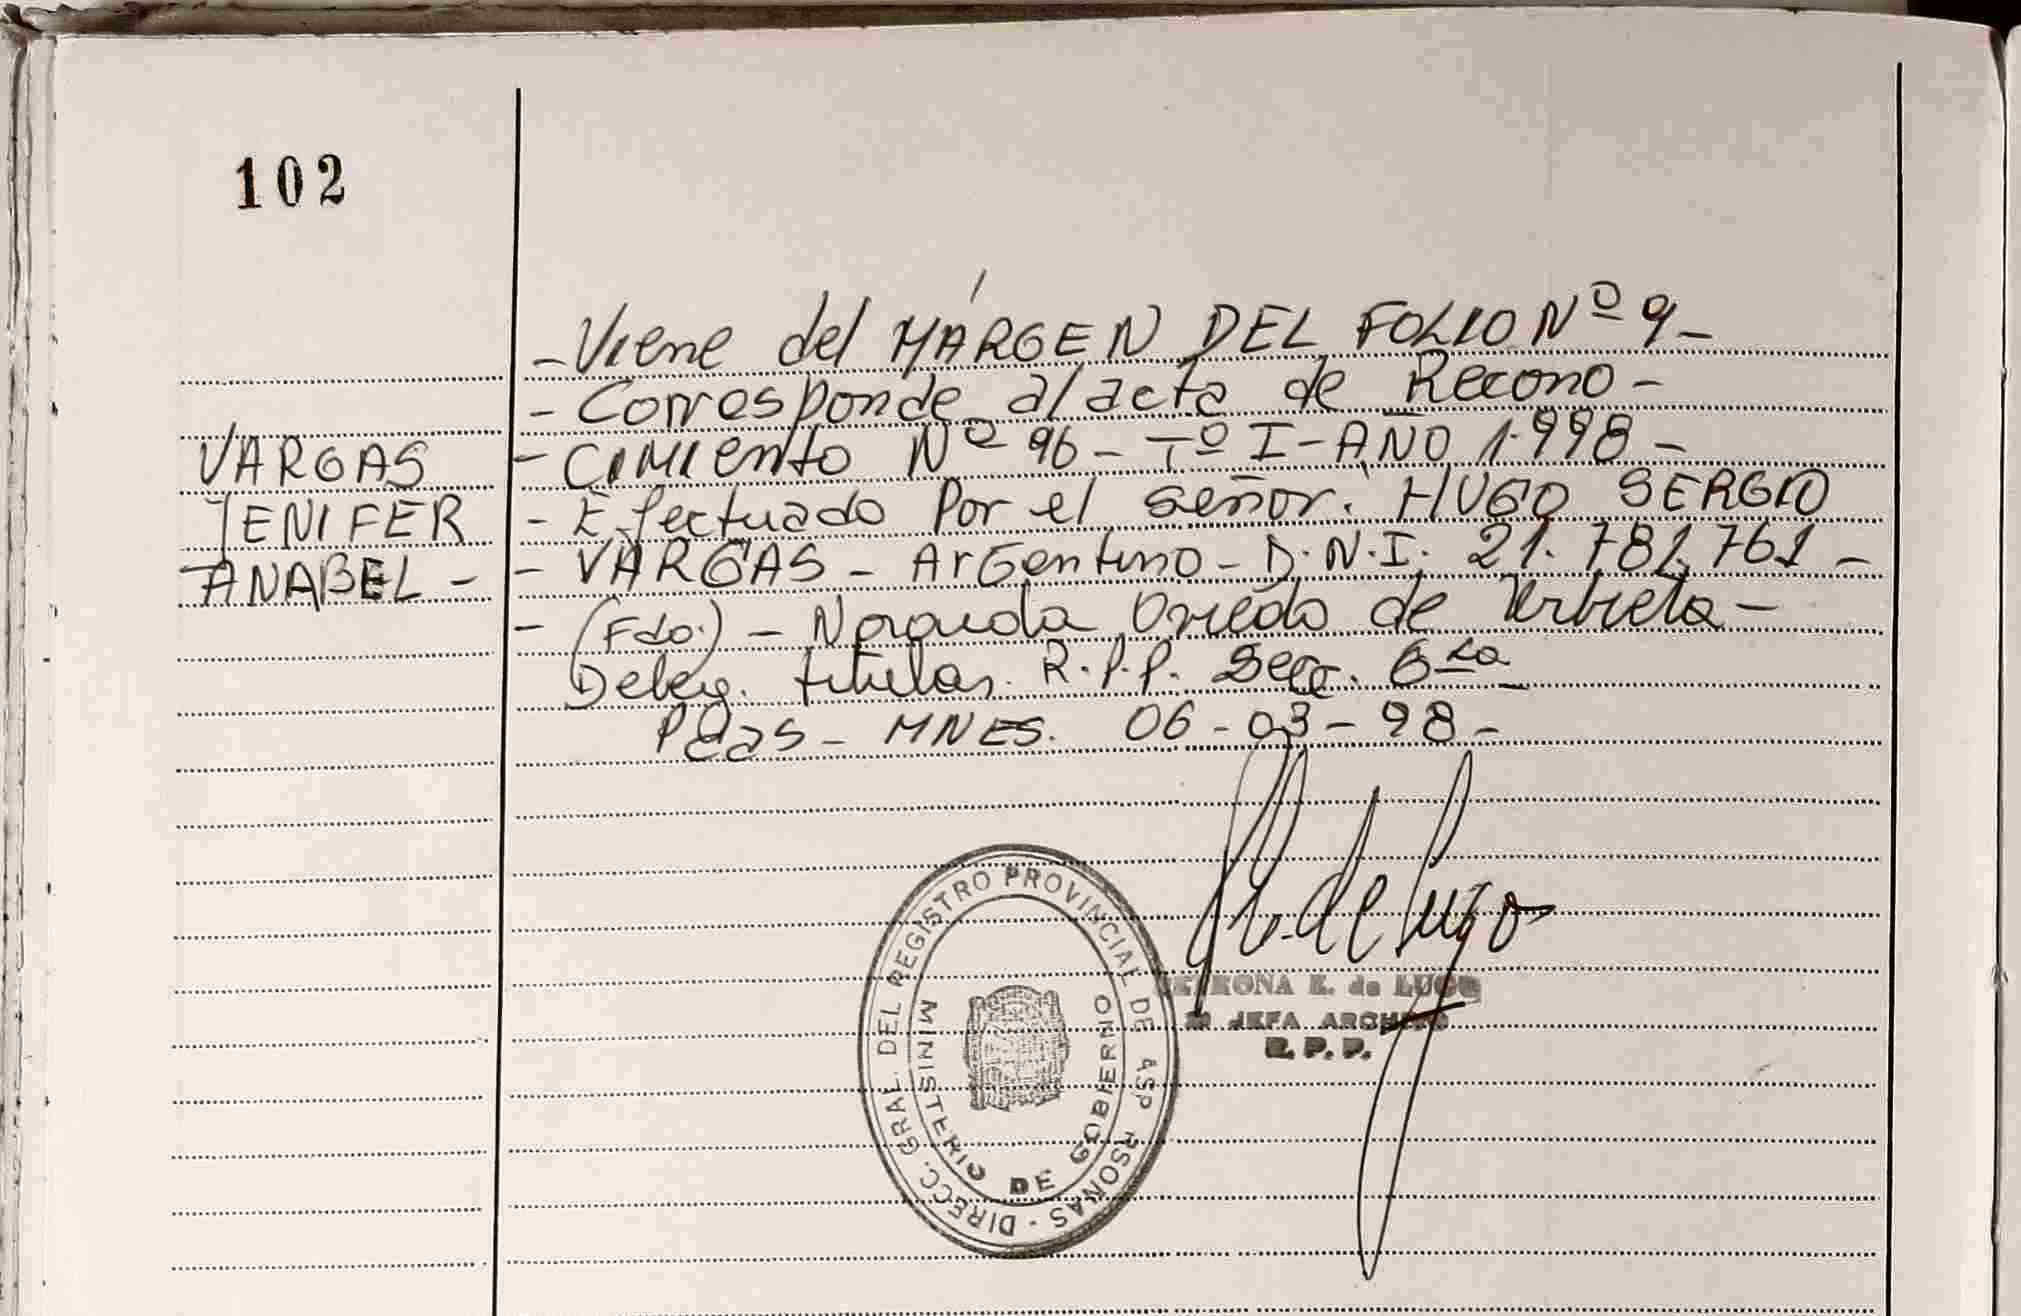 102
- Viene del MÁRGEN DEL FOLIO Nº 9 -
- Corresponde al acta de Recono -
VARGAS
- CIMIENTO Nº 96 - Tº I - AÑO 1.998 -
JENIFER
- Efectuado Por el señor. HUGO SERGIO
ANABEL -
- VARGAS - ArGentino - D.N.I. 21.781.761 -
- (Fdo.) - Oviedo de Urbieta -
Deleg. titular. R.P.P. Secc. 6ta
Pdas - MNES. 06 - 03 - 98 -
DIRECC. GRAL. DEL REGISTRO PROVINCIAL DE
MINISTERIO DE GOBIERNO
de Lugo
E. de LUGO
JEFA ARCHIVO
R. P. P.